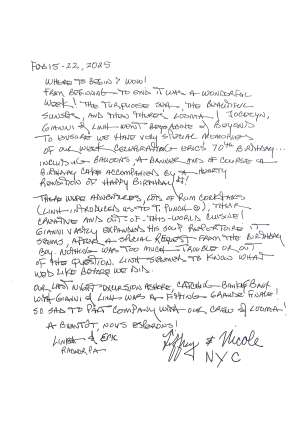 FEB 15-22, 2025
WHERE TO BEGIN? WOW!
FROM BEGINNING TO END IT WAS A WONDERFUL
WEEK! THE TURQUOISE SEA, THE BEAUTIFUL
SUNSETS, AND THEN THERE'S LOOMA! JOCELYN,
GIANNI & LINH WENT BEYOND & BEYOND
TO ENSURE WE HAVE VERY SPECIAL MEMORIES
OF OUR WEEK CELEBRATING ERIC'S 70TH BIRTHDAY...
INCLUDING BALLOONS, A BANNER AND OF COURSE A
BIRTHDAY CAKE ACCOMPANIED BY A HEARTY
RENDITION OF HAPPY BIRTHDAY!
THERE WERE ADVENTURES, LOTS OF RUM COCKTAILS
(LINH INTRODUCED US TO T. PUNCH), THEIR
CREATIVE AND OUT OF THIS WORLD CUISINE!
GIANNI VASTLY EXPANDED HIS SOUP REPERTOIRE IT
SEEMS, AFTER A SPECIAL REQUEST FROM THE BIRTHDAY
BOY. NOTHING WAS TOO MUCH TROUBLE OR OUT
OF THE QUESTION. LINH SEEMED TO KNOW WHAT
WE'D LIKE BEFORE WE DID.
OUR LAST NIGHT EXCURSION ASHORE, CATCHING
WITH GIANNI & LINH WAS A FITTING GRANDE FINALE!
SO SAD TO PART COMPANY WITH OUR CREW OF LOOMA!
A BIENTÔT, NOUS ESPERONS!
& ERIC
Jeffrey & Nicole
NYC